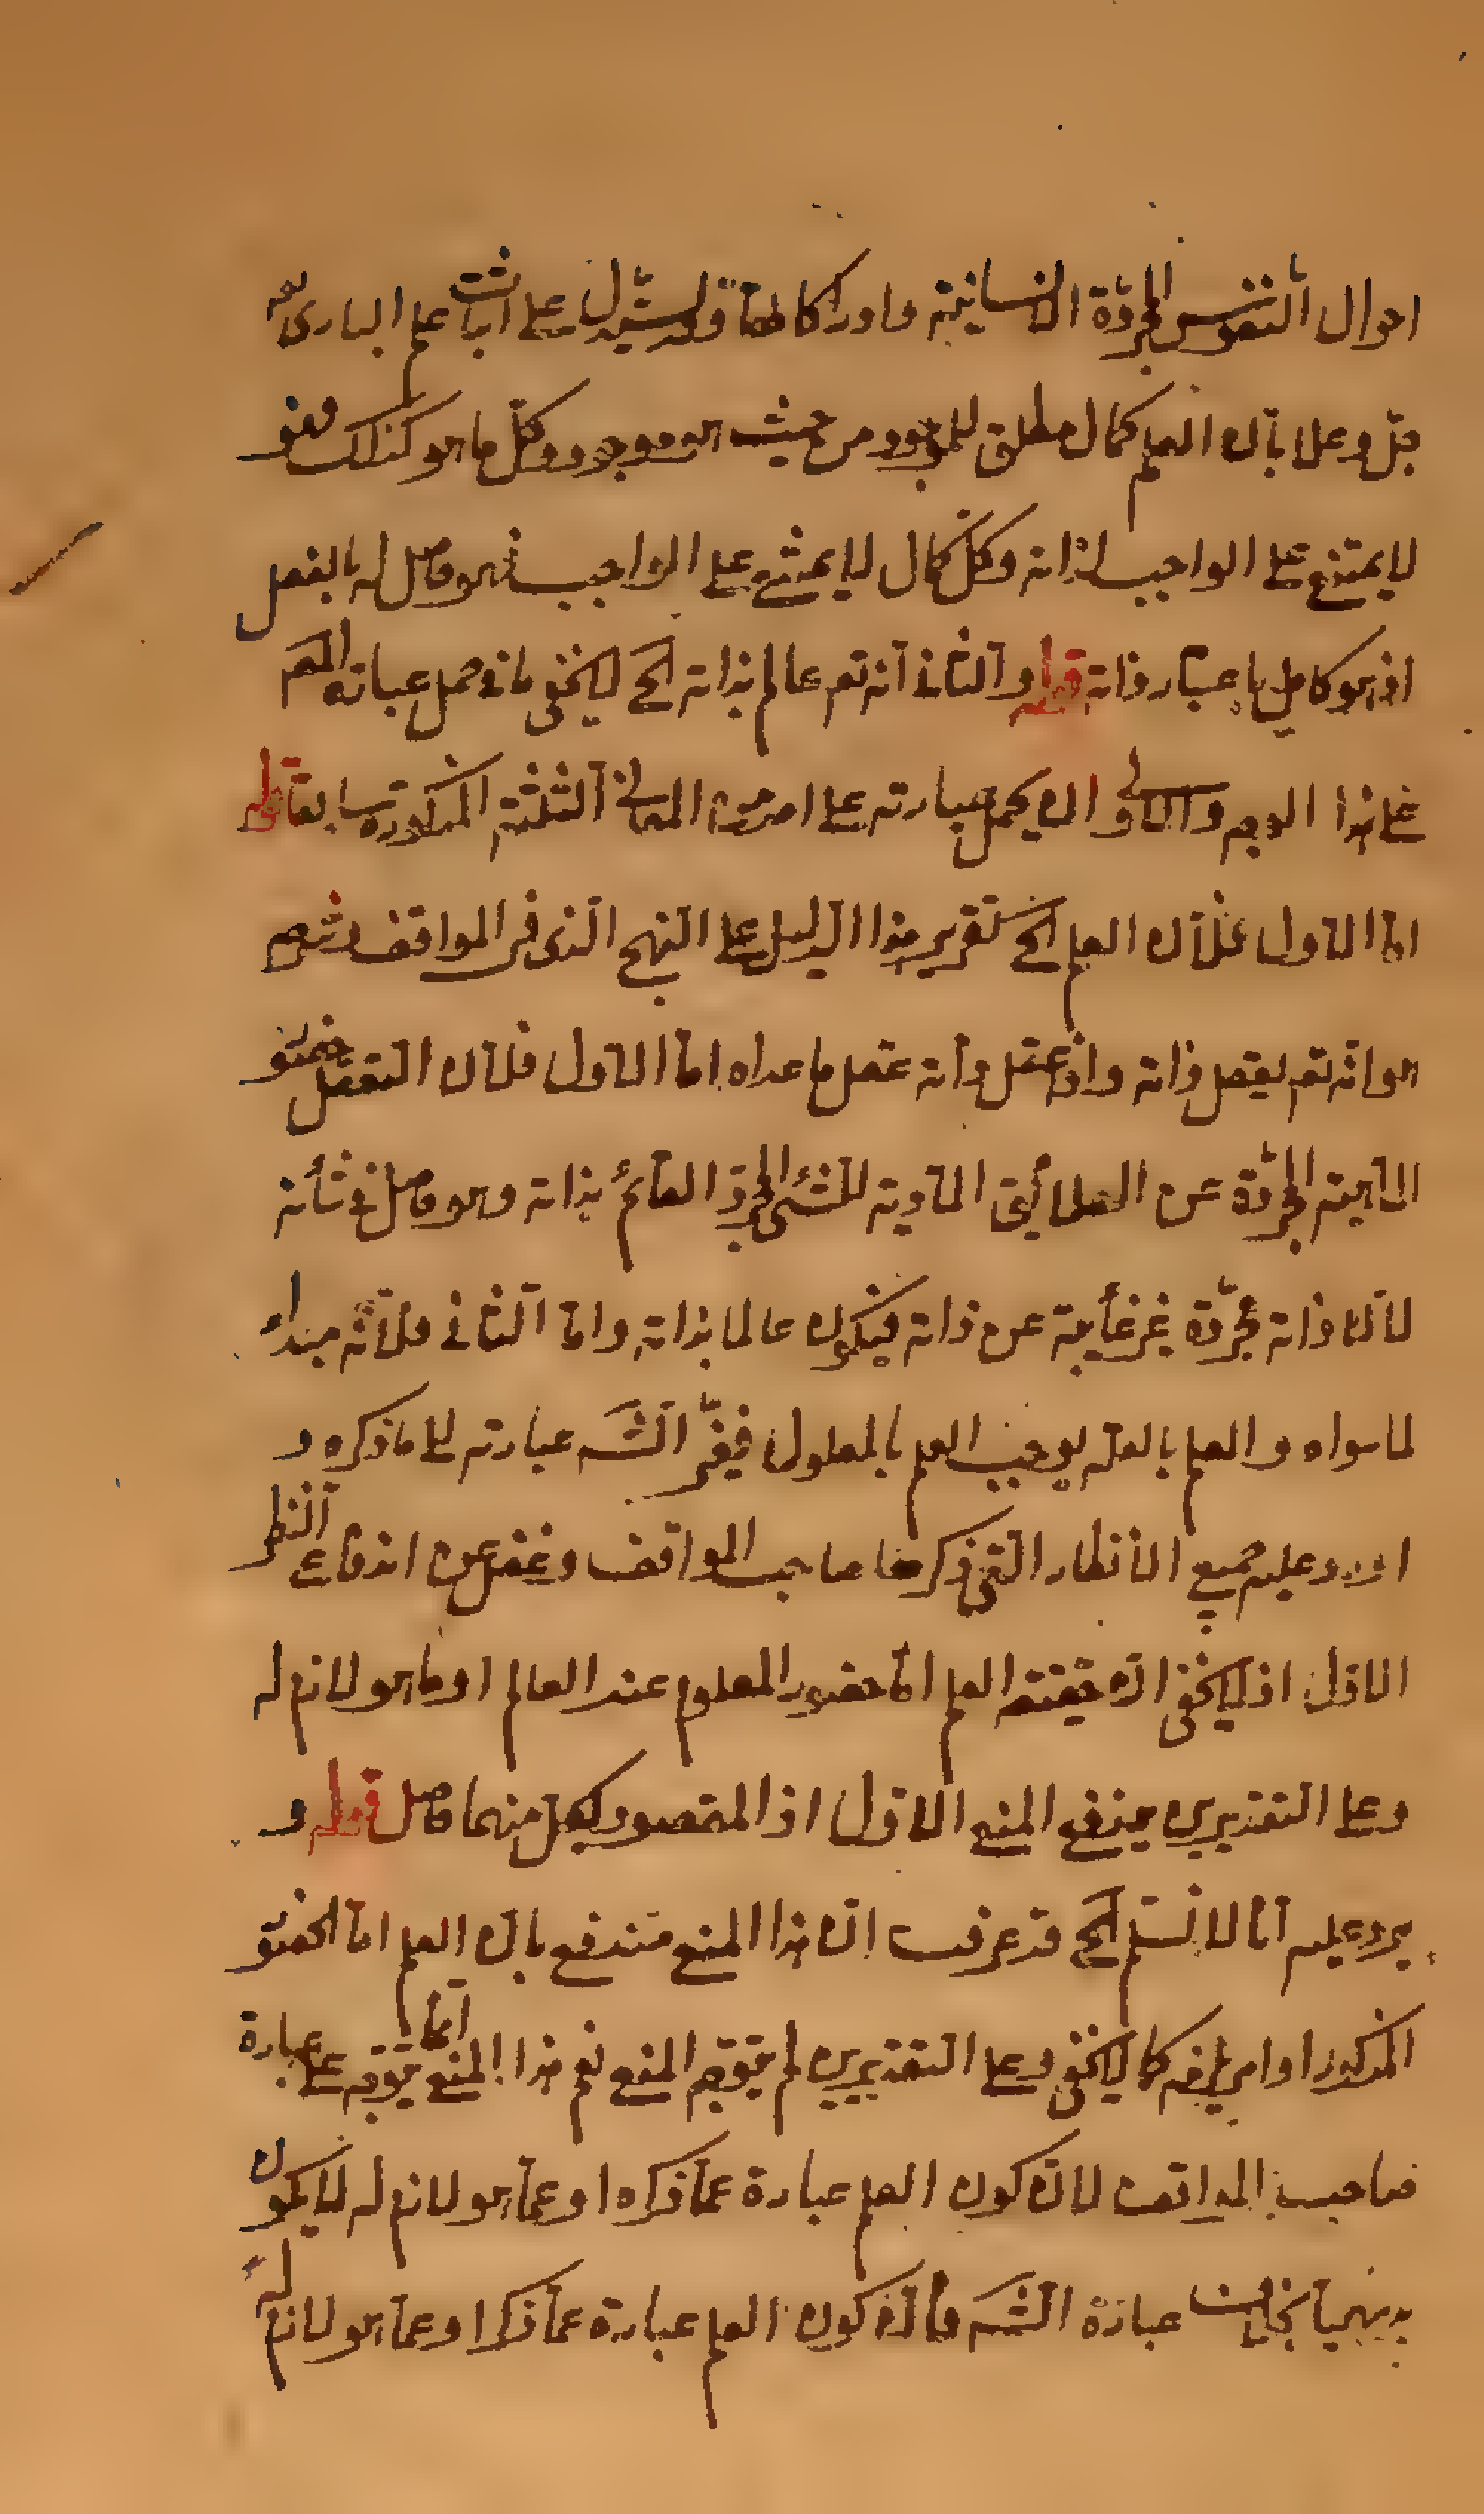 احوال النفوس المجردة الانسانية وادراكاتها وقد يستدل على اثبات علم البارى تع
جل وعلا بان العلم كمال مطلق للموجود من حيث هو موجود وكل ما هو كذلك فهو
لا يمتنع على الواجب لذاته وكل كمال لا يمتنع على الواجب فهو حاصل له بالفعل
اذ هو كامل باعتبار ذاته قوله والثانى انه تع عالم بذاته الخ لا يخفى ما فى حمل عبارته المص
على هذا الوجه والاولى ان يحمل عبارته على امر من المعانى الثلثة المذكورة سابقا قوله
اما الاول فلان العلم الخ تقرير هذا الدليل على النهج الذى فى المواقف وشرحه
هو انه تع يعقل ذاته واذا عقل ذاته عقل ما عداه اما الاول فلان التعقل حضور
الماهية المجردة عن العلائق المادية للشئ المجرد القائم بذاته وهو حاصل فى شأنه
لان ذاته مجردة غير غائبة عن ذاته فيكون عالما بذاته واما الثانى فلانه مبداء
لما سواه والعلم بالعلة يوجب العلم بالمعلول فيغير الشه عبارته الى ما ذكره و
اورد عليه جميع الأنظار التى ذكرها صاحب المواقف وغفل عن اندفاع النظر
الاول اذ لا يخفى ان حقيقة العلم اما حضور المعلوم عند العالم او ما هو لازم له
وعلى التقديرين يندفع المنع الاول اذ المقصود بكل منهما حاصل قوله و
يرد عليه انا لا نسلم الخ قد عرفت ان هذا المنع مندفع بان العلم اما الحضور
المذكور او امر يلزمه كما لا يخفى وعلى التقديرين لم يتوجه المنع نعم هذا المنع انما يتوجه على عبارة
صاحب المواقف لان كون العلم عبارة عما ذكره او عما هو لازم له لا يكون
بديهيا بخلاف عبارة الشه فان كون العلم عبارة عما ذكرا وعما هو لازم له